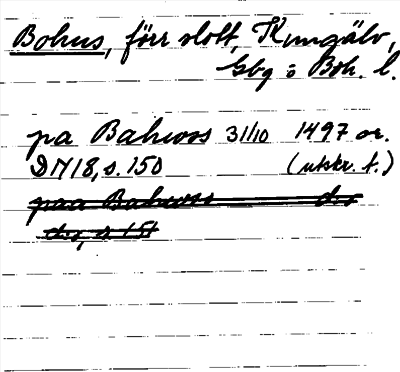 Bohus, förr slott, Kungälv,
Gbg o Boh. l.
pa Bahwss 31/10 1497 or.
DN 18, s. 150 (utskr. f.)
paa Bahwss ds
ds, s 151